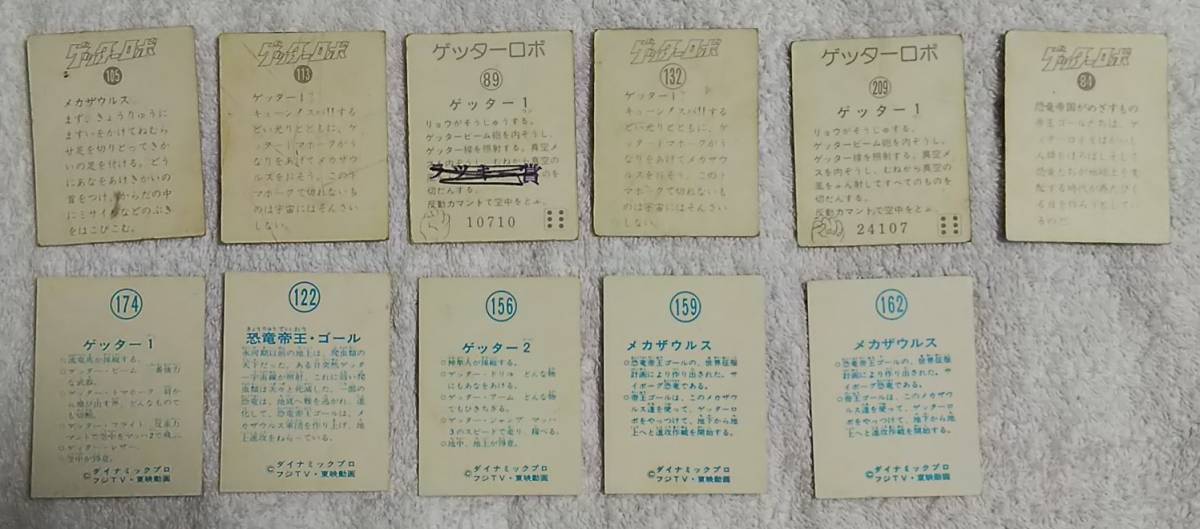 ゲッターロボ
105
メカザウルス
まず、きょうりゅうに
ますいをかけてねむら
せ足を切りとってきか
いの足を付ける。どう
にあなをあけきかいの
首をつけ、からだの中
にミサイルなどのぶき
をはこびこむ。
ゲッターロボ
113
ゲッター1
キューン！ズバ!!する
どい光りとともに、ゲ
ッター1マホークがう
なりをあげてメカザウ
ルスをおそう。このト
マホークで切れないも
のは宇宙にはそんざい
しない。
ゲッターロボ
89
ゲッター1
リョウがそうじゅうする。
ゲッタービーム砲を内そうし、
ゲッター線を照射する。真空メ
ラッキー賞
切だんする。
反動力マントで空中をとぶ
10710
ゲッターロボ
132
ゲッター1
キューン！ズバ!!する
どい光りとともに、ゲ
ッター1マホークがう
なりをあげてメカザウ
ルスをおそう。このト
マホークで切れないも
のは宇宙にはそんざい
しない。
ゲッターロボ
209
ゲッター1
リョウがそうじゅうする。
ゲッタービーム砲を内そうし、
ゲッター線を照射する。真空メ
スを内そうし、むねから真空の
嵐をふん射してすべてのものを
切だんする。
反動力マントで空中をとぶ
24107
ゲッターロボ
84
恐竜帝国がめざすもの
帝王ゴールたちは、ゲ
ッターロボをはかいし
人類をほろぼしそして
恐竜たちが地球上を支
配する時代が再たびく
る日を待ちのぞんでい
るのだ
174
ゲッター1
○流竜馬が操縦する。
○ゲッター・ビーム 一番強力
な武器。
○ゲッター・トマホーク 肩か
ら飛び出す斧、どんなもので
も切断。
○ゲッター・フライト 反重力
マントで空中をマッハ2で飛ぶ
○ゲッター・レザー
○空中が得意。
©ダイナミックプロ
フジTV・東映動画
122
きょうりゅうていおう
恐竜帝王・ゴール
氷河期以前の地上は、爬虫類の
天下だった。ある日突然ゲッタ
ー宇宙線が照射、これに弱い爬
虫類は次々と死滅した。一部の
恐竜は、地底へ難を逃がれ、進
化して、恐竜帝王ゴールは、メ
カザウルス軍団を作り上げ、地
上進攻をねらっている。
©ダイナミックプロ
フジTV・東映動画
156
ゲッター2
○神隼人が操縦する。
○ゲッター・ドリル どんな物
にもあなをあける。
○ゲッター・アーム どんな物
でもひきちぎる。
○ゲッター・ジャンプ マッハ
3のスピードで走り、飛べる。
○地中、地上が得意。
©ダイナミックプロ
フジTV・東映動画
159
メカザウルス
○恐竜帝王ゴールの、世界征服
計画により作り出された、サ
イボーグ恐竜である。
○帝王ゴールは、このメカザウ
ルス達を使って、ゲッターロ
ボをやっつけて、地下から地
上へと進攻作戦を開始する。
©ダイナミックプロ
フジTV・東映動画
162
メカザウルス
○恐竜帝王ゴールの、世界征服
計画により作り出された、サ
イボーグ恐竜である。
○帝王ゴールは、このメカザウ
ルス達を使って、ゲッターロ
ボをやっつけて、地下から地
上へと進攻作戦を開始する。
©ダイナミックプロ
フジTV・東映動画